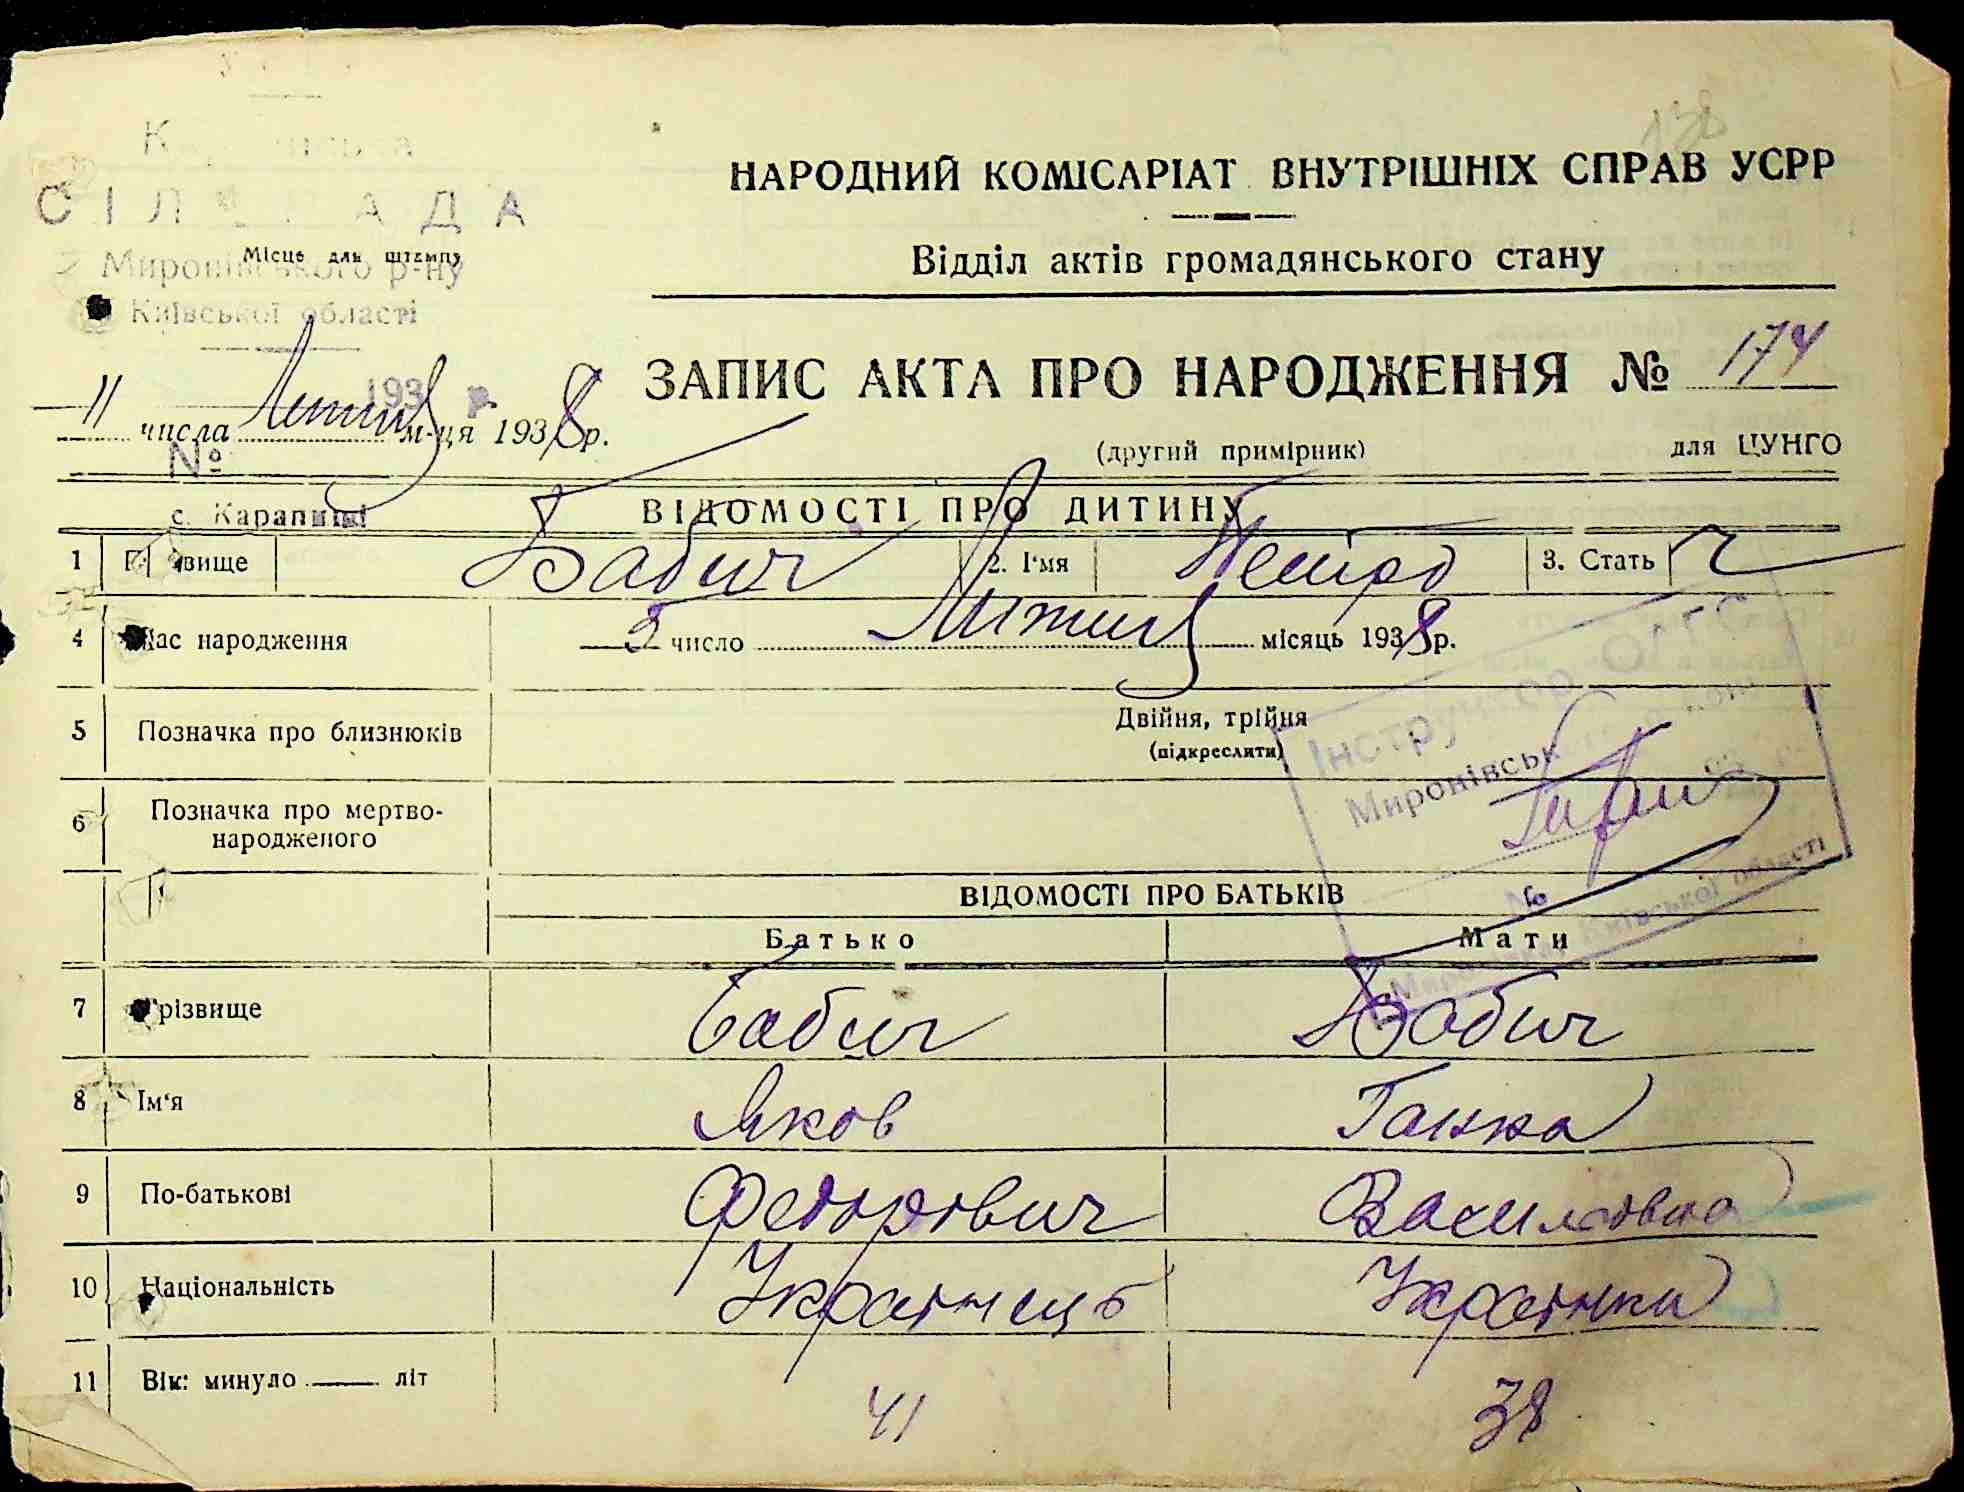 138
НАРОДНИЙ КОМІСАРІАТ ВНУТРІШНІХ СПРАВ УСРР
СІЛ РАДА
Місце для штампу
Миронівського р-ну
Відділ актів громадянського стану
Київської області
ЗАПИС АКТА ПРО НАРОДЖЕННЯ № 174
193 р.
11 числа Лютий м-ця 1938 р.
(другий примірник) для ЦУНГО
№
с. Карапиші
ВІДОМОСТІ ПРО ДИТИНУ
1 Прізвище Бабич 2. І'мя Петро 3. Стать ч
4 Час народження число Лютий місяць 1938 р.
5 Позначка про близнюків Двійня, трійня
(підкреслити)
Інструктор ОАГС
Миронівськ
№
Київської області
6 Позначка про мертво-
народженого
ВІДОМОСТІ ПРО БАТЬКІВ
Батько Мати
7 Прізвище Бабич Бабич
8 Ім'я Яков Ганна
9 По-батькові Федорович Василовна
10 Національність Українець Українка
11 Вік: минуло літ 41 38